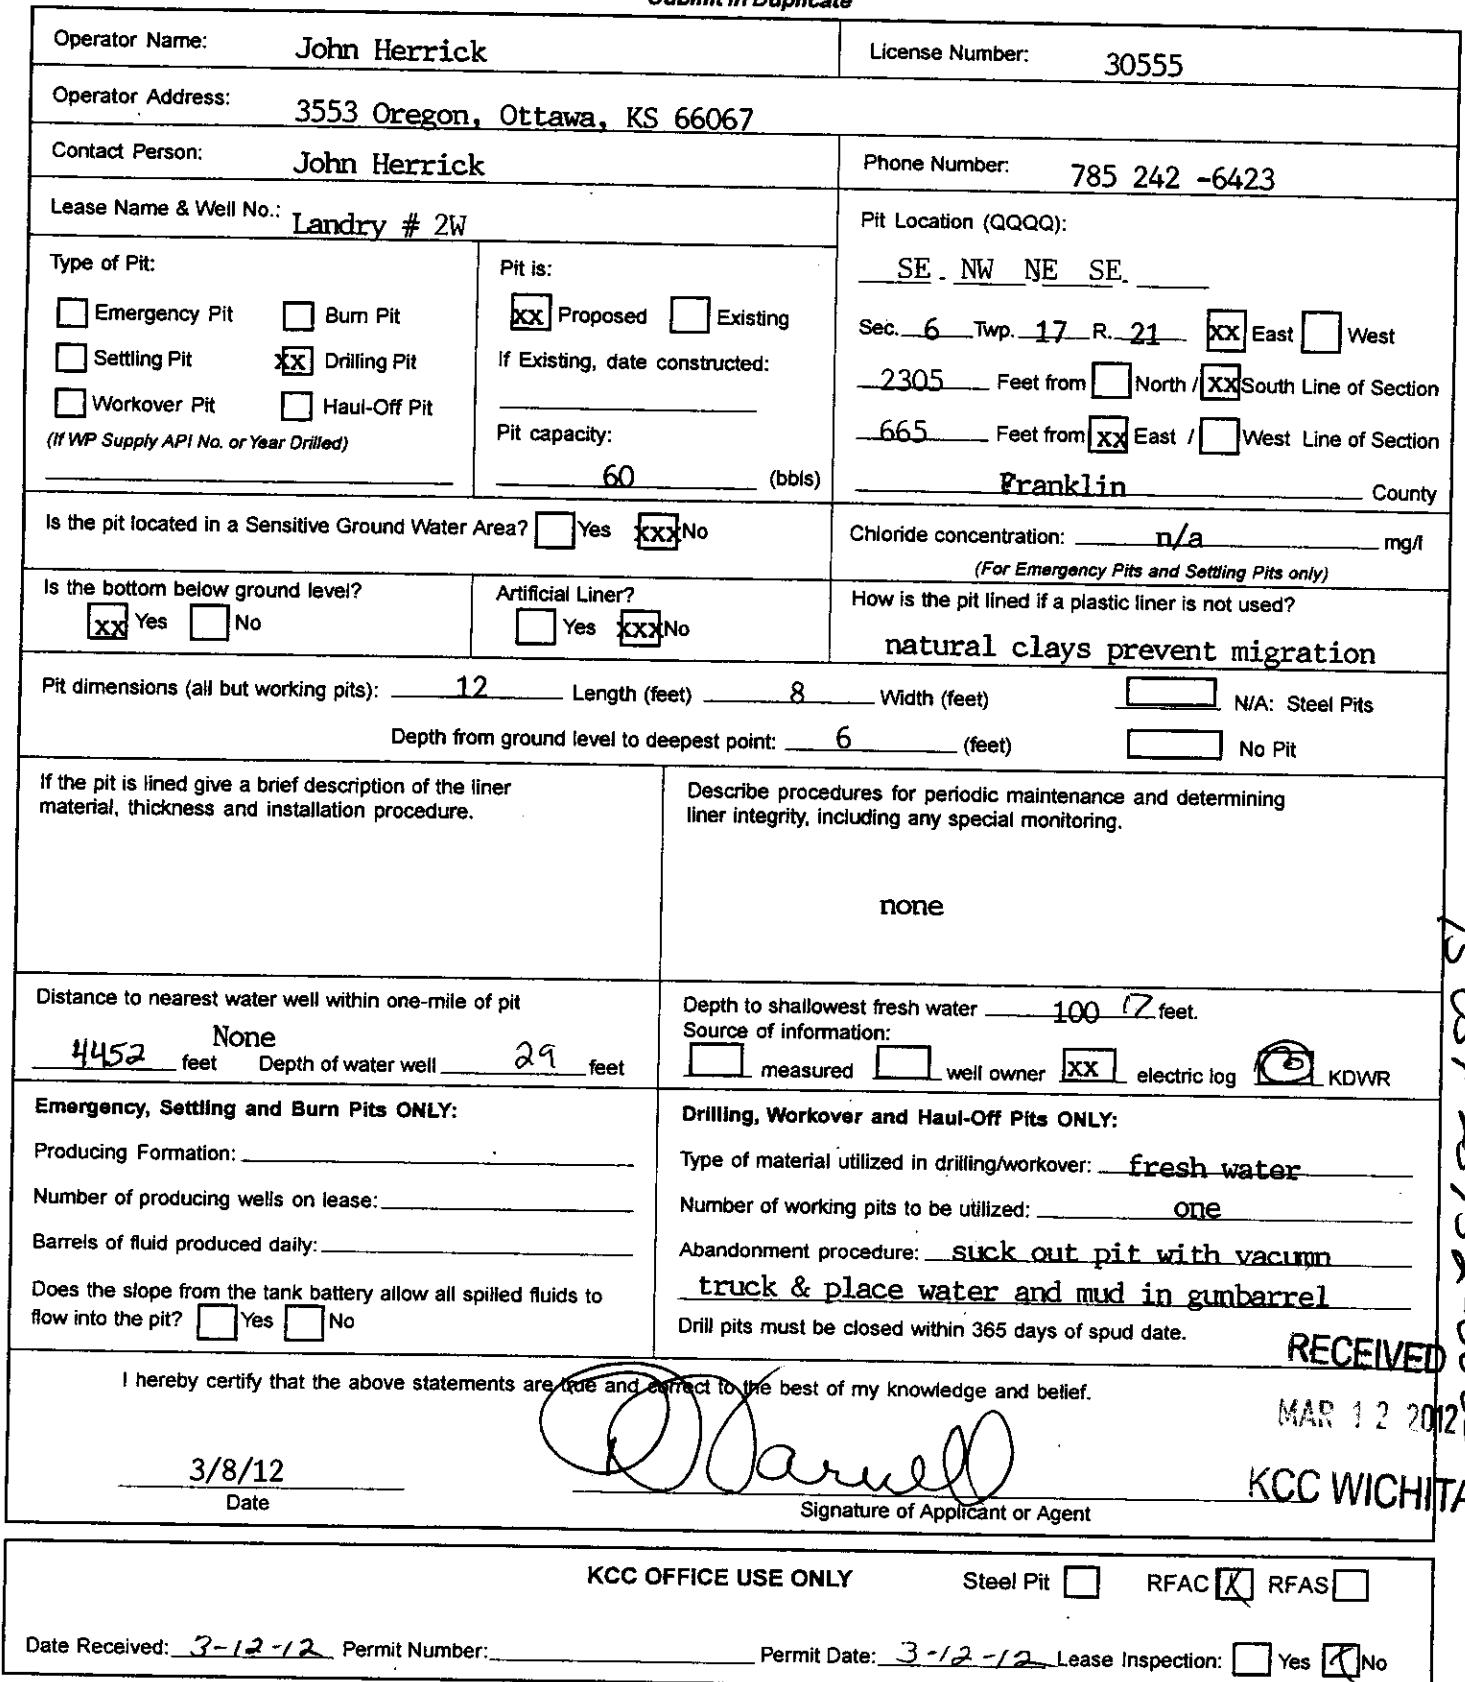 Submit in Duplicate
Operator Name: John Herrick
License Number: 30555
Operator Address: 3553 Oregon, Ottawa, KS 66067
Contact Person: John Herrick
Phone Number: 785 242 -6423
Lease Name & Well No.: Landry # 2W
Pit Location (QQQQ):
SE - NW NE SE
Type of Pit:
Emergency Pit Burn Pit
Settling Pit xx Drilling Pit
Workover Pit Haul-Off Pit
(If WP Supply API No. or Year Drilled)
Pit is:
xx Proposed Existing
If Existing, date constructed:
Pit capacity:
60 (bbls)
Sec. 6 Twp. 17 R. 21 xx East West
2305 Feet from North / xx South Line of Section
665 Feet from xx East / West Line of Section
Franklin County
Is the pit located in a Sensitive Ground Water Area? Yes xxx No
Chloride concentration: n/a mg/l
(For Emergency Pits and Settling Pits only)
Is the bottom below ground level?
xx Yes No
Artificial Liner?
Yes xxx No
How is the pit lined if a plastic liner is not used?
natural clays prevent migration
Pit dimensions (all but working pits): 12 Length (feet) 8 Width (feet) N/A: Steel Pits
Depth from ground level to deepest point: 6 (feet) No Pit
If the pit is lined give a brief description of the liner
material, thickness and installation procedure.
Describe procedures for periodic maintenance and determining
liner integrity, including any special monitoring.
none
Distance to nearest water well within one-mile of pit
None
4452 feet Depth of water well 29 feet
Depth to shallowest fresh water 100 17 feet.
Source of information:
measured well owner xx electric log KDWR
Emergency, Settling and Burn Pits ONLY:
Producing Formation:
Number of producing wells on lease:
Barrels of fluid produced daily:
Does the slope from the tank battery allow all spilled fluids to
flow into the pit? Yes No
Drilling, Workover and Haul-Off Pits ONLY:
Type of material utilized in drilling/workover: fresh water
Number of working pits to be utilized: one
Abandonment procedure: suck out pit with vacumn
truck & place water and mud in gunbarrel
Drill pits must be closed within 365 days of spud date.
RECEIVED
I hereby certify that the above statements are true and correct to the best of my knowledge and belief.
MAR 12 2012
3/8/12
Date
Signature of Applicant or Agent
KCC WICHITA
KCC OFFICE USE ONLY Steel Pit RFAC X RFAS
Date Received: 3-12-12 Permit Number: Permit Date: 3-12-12 Lease Inspection: Yes X No